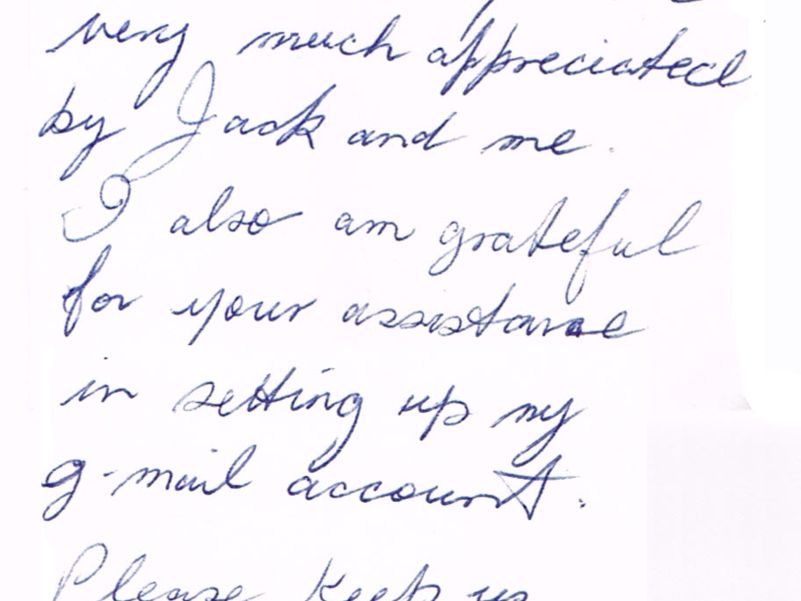 very much appreciated
by Jack and me.
I also am grateful
for your assistance
in setting up my
g-mail account.
Please keep us